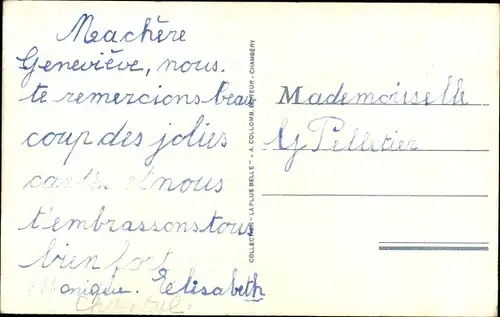 Machère
Geneviève, nous
te remercions beau
coup des jolies
cartes et nous
t'embrassons tous
bien fort
Monique. Elisabeth
Chantal.
COLLECTION "LA PLUS BELLE" - A. COLLOMB, EDITEUR - CHAMBÉRY
Mademoiselle
G Pelletier